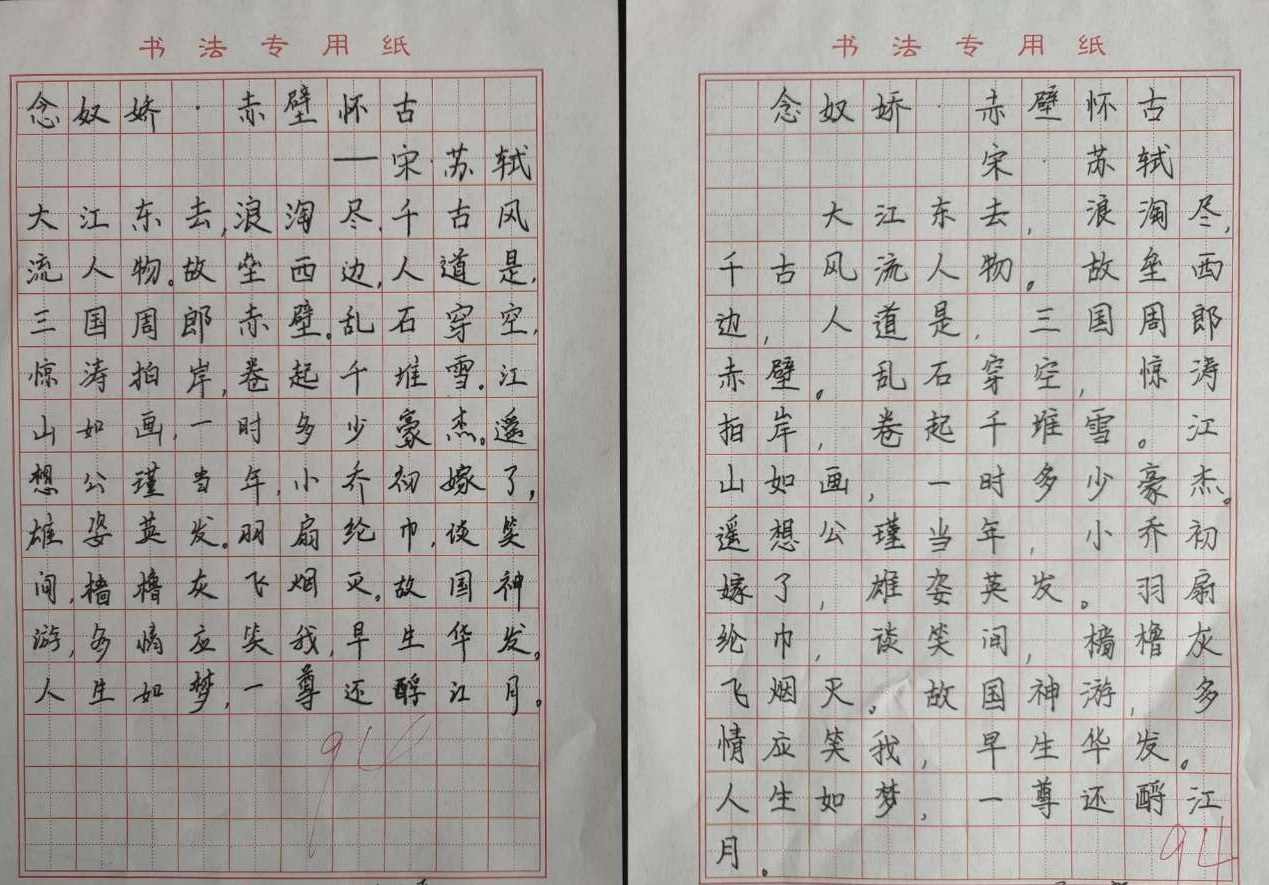 书法专用纸
念奴娇·赤壁怀古
——宋·苏轼
大江东去,浪淘尽,千古风
流人物。故垒西边,人道是,
三国周郎赤壁。乱石穿空,
惊涛拍岸,卷起千堆雪。江
山如画,一时多少豪杰。遥
想公瑾当年,小乔初嫁了,
雄姿英发。羽扇纶巾,谈笑
间,樯橹灰飞烟灭。故国神
游,多情应笑我,早生华发。
人生如梦,一尊还酹江月。
94
书法专用纸
念奴娇·赤壁怀古
宋·苏轼
大江东去,浪淘尽,
千古风流人物。故垒西
边,人道是,三国周郎
赤壁。乱石穿空,惊涛
拍岸,卷起千堆雪。江
山如画,一时多少豪杰。
遥想公瑾当年,小乔初
嫁了,雄姿英发。羽扇
纶巾,谈笑间,樯橹灰
飞烟灭。故国神游,多
情应笑我,早生华发。
人生如梦,一尊还酹江
月。
94